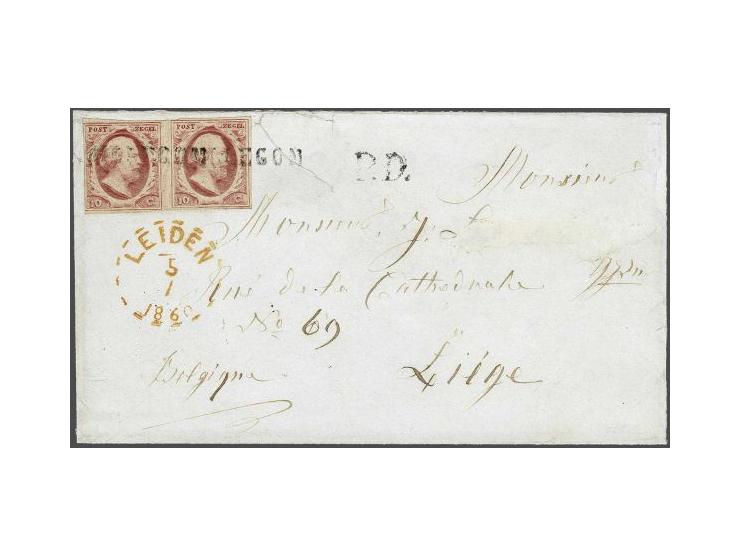 POST ZEGEL POST ZEGEL
10 C. 10 C.
P.D.
LEIDEN
5
1
1860
Monsieur
Monsieur J.
Rue de la Cathedrale
No 69
Liége
Belgique